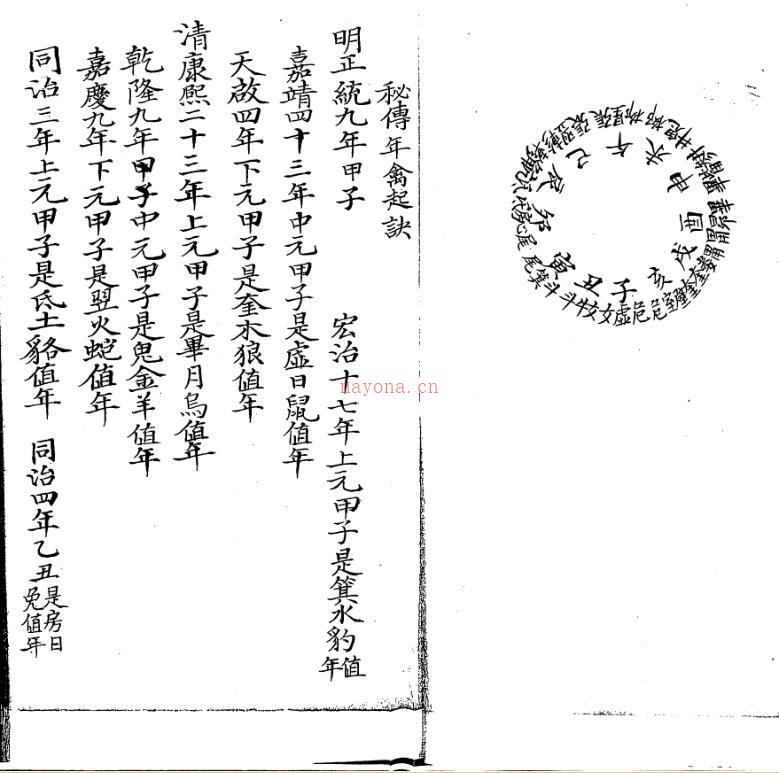 秘傳年禽起訣
明正統九年甲子 宏治十七年上元甲子是箕水豹值年
嘉靖四十三年中元甲子是虛日鼠值年
天啟四年下元甲子是奎木狼值年
清康熙二十三年上元甲子是畢月烏值年
乾隆九年甲子中元甲子是鬼金羊值年
嘉慶九年下元甲子是翌火蛇值年
同治三年上元甲子是氐土貉值年 同治四年乙丑是房日兔值年
子丑寅卯辰巳午未申酉戌亥
nayona.cn